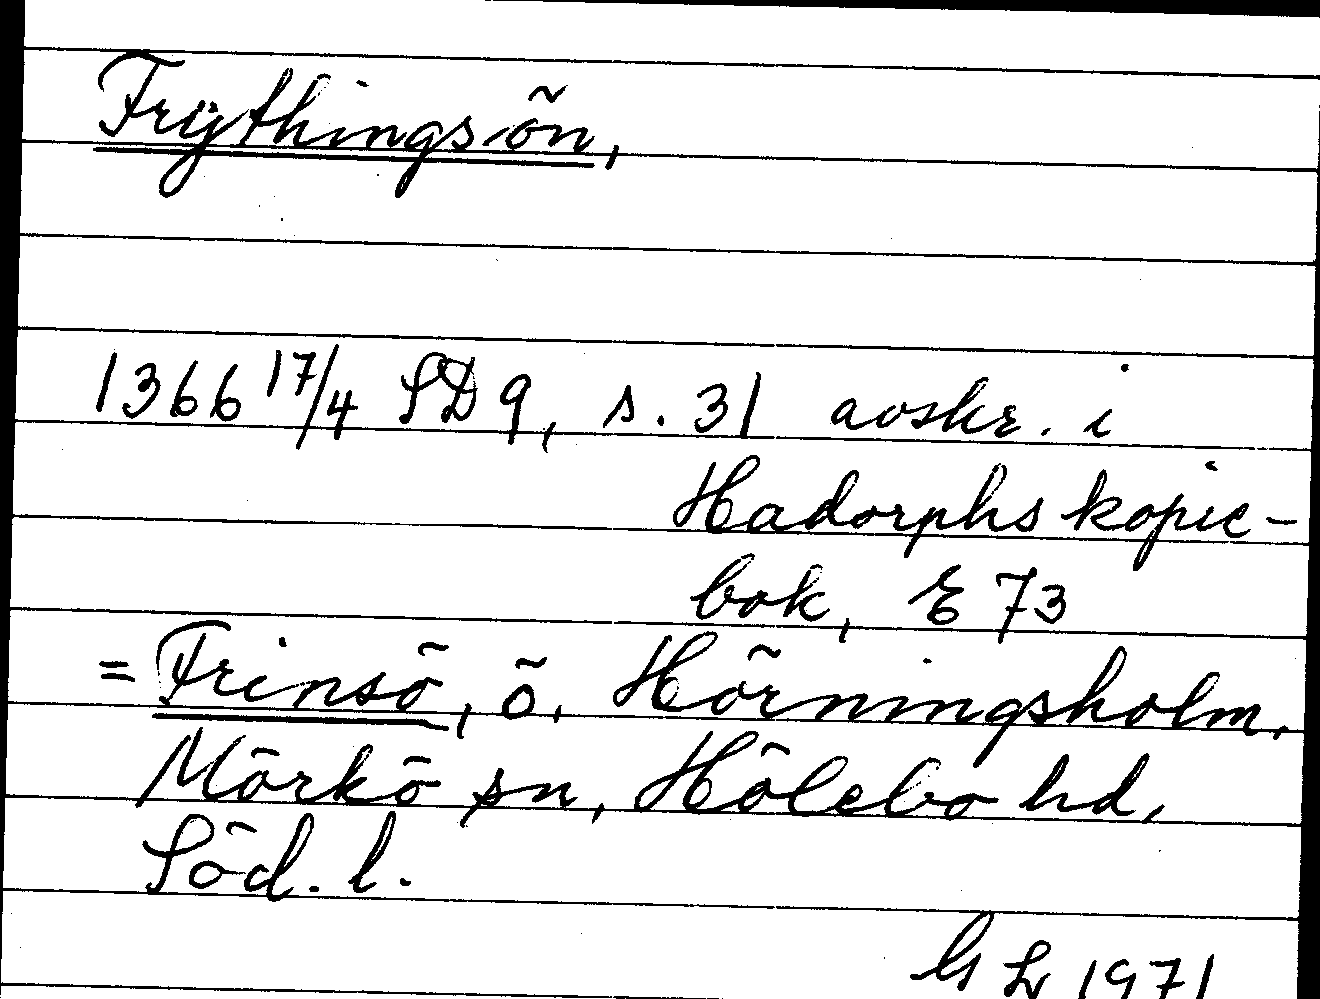 Frÿthingsön,
1366 17/4 SD 9, s. 31 avskr. i
Hadorphs kopie-
bok, E 73
= Frinsö, ö, Hörningsholm,
Mörkö sn, Hölebo hd,
Söd. l.
GL 1971